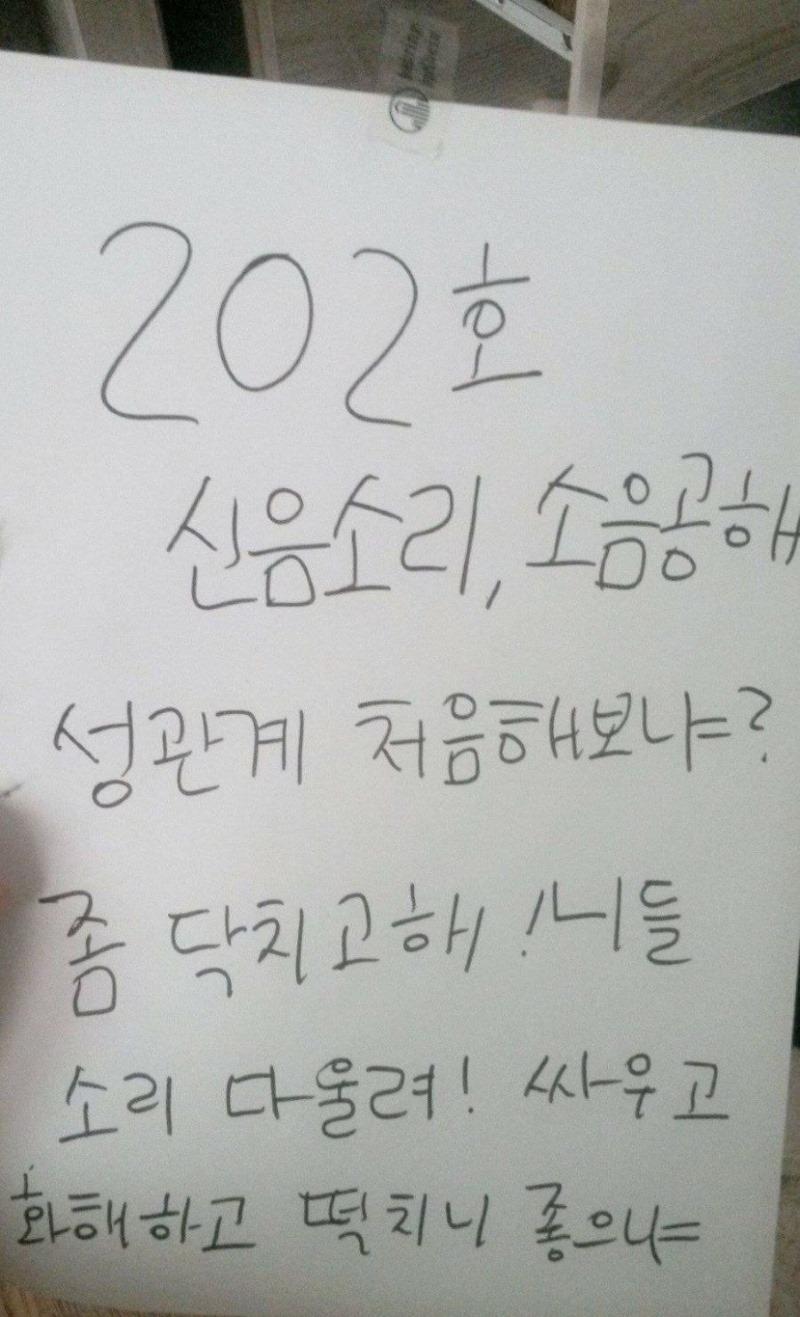 202호
신음소리, 소음공해
성관계 처음해보냐=?
좀 닥치고해! 니들
소리 다울려! 싸우고
화해하고 떡치니 좋으냐=